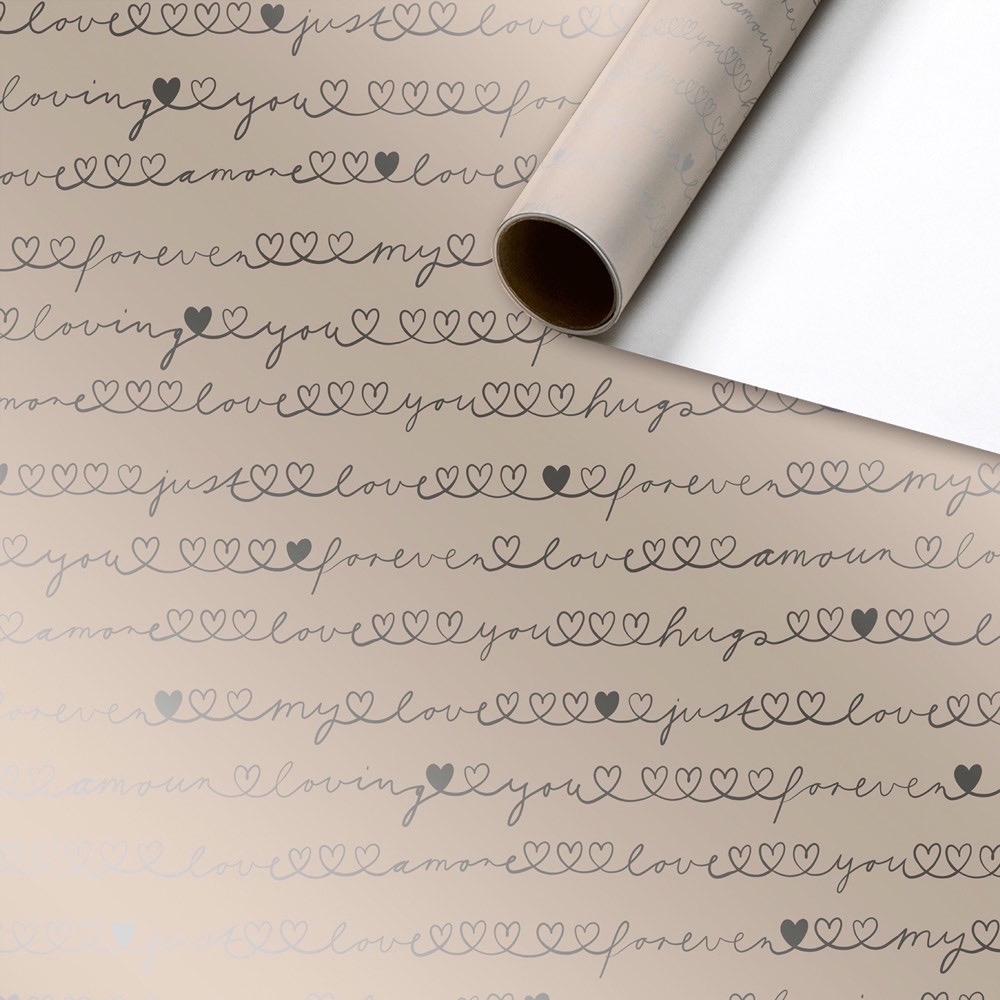 love just love
loving you for
love amore love
forever my
loving you
amore love you hugs
just love forever my
you forever love amour lo
amore love you hugs
forever my love just love
amour loving you forever
love amore love you
just love forever my